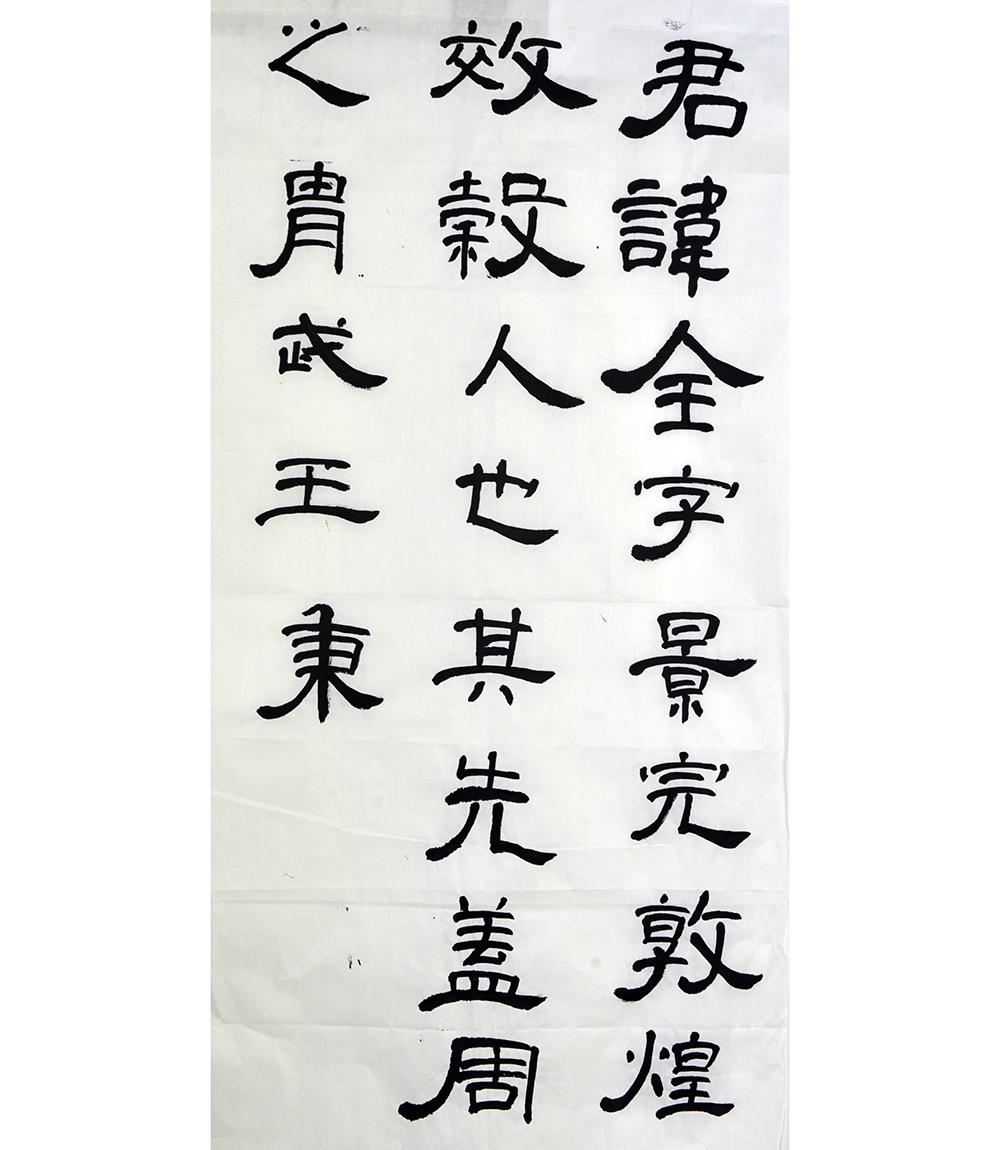 君諱全字景完敦煌
效穀人也其先蓋周
之胄武王秉